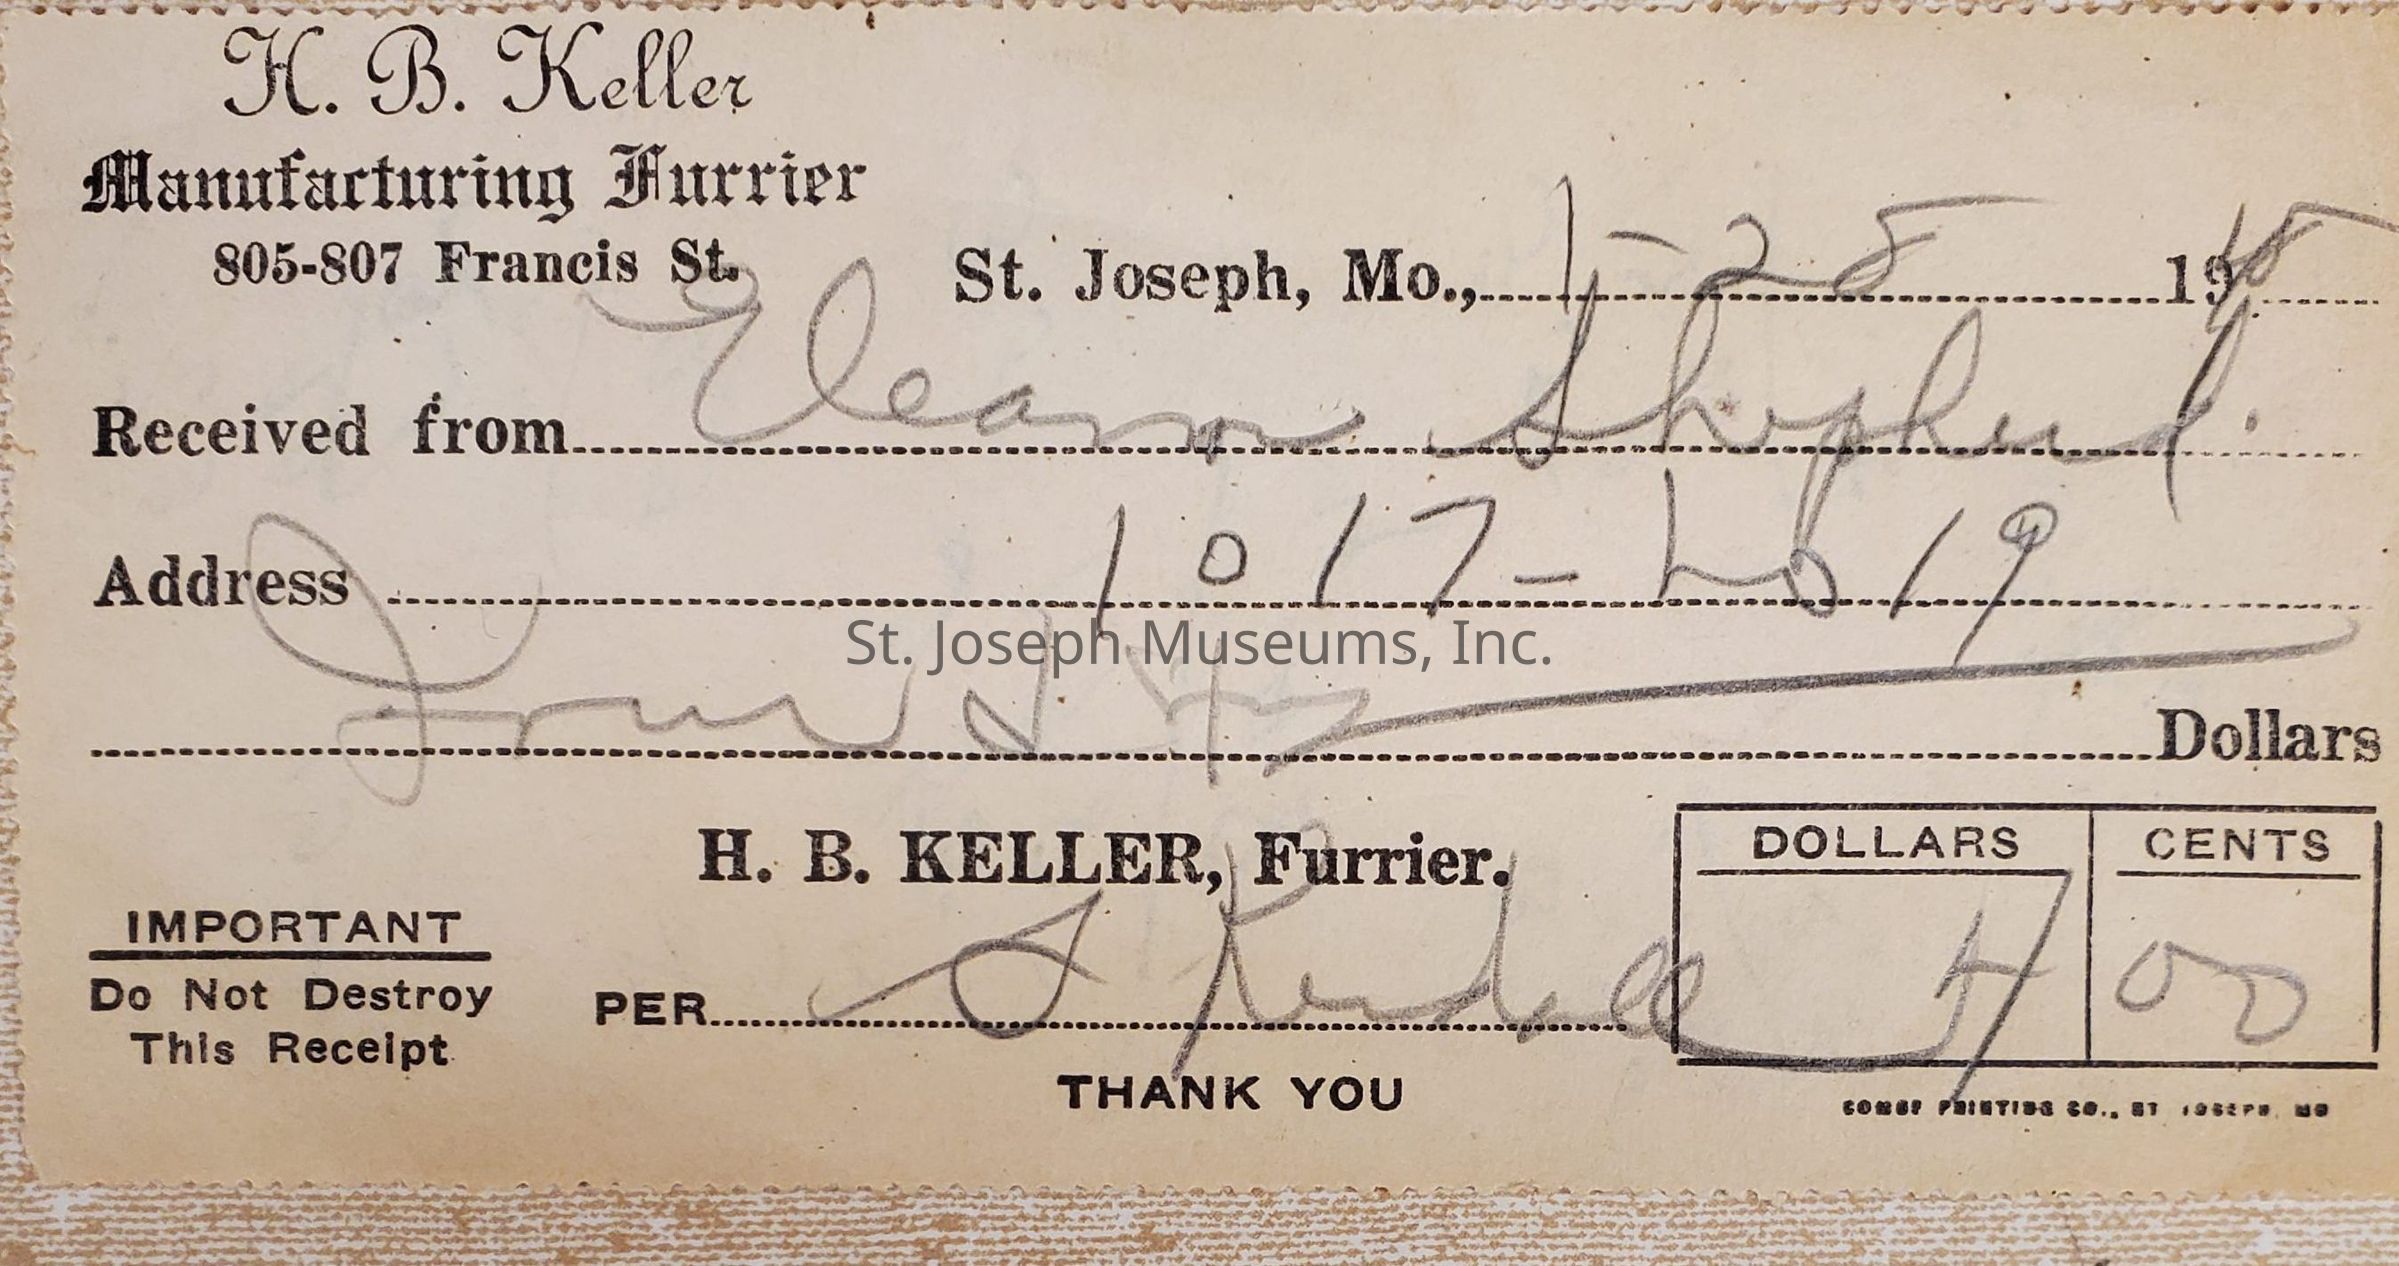 H. B. Keller
Manufacturing Furrier
805-807 Francis St.
St. Joseph, Mo., 1-25 1945
Received from Eleanor Shepherd.
Address 1017- No 19
St. Joseph Museums, Inc.
Four & no Dollars
H. B. KELLER, Furrier.
DOLLARS CENTS
4 00
IMPORTANT
Do Not Destroy
This Receipt
PER S Kendall
THANK YOU
COMBE PRINTING CO., ST JOSEPH, MO